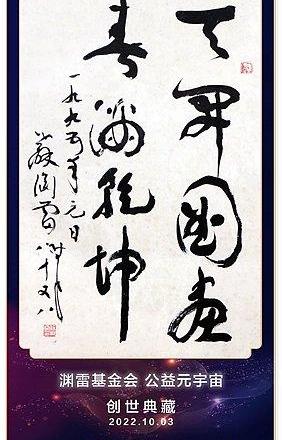 天開圖畫
春滿乾坤
一九九五年元日
蘇渊雷
渊雷基金会 公益元宇宙
创世典藏
2022.10.03